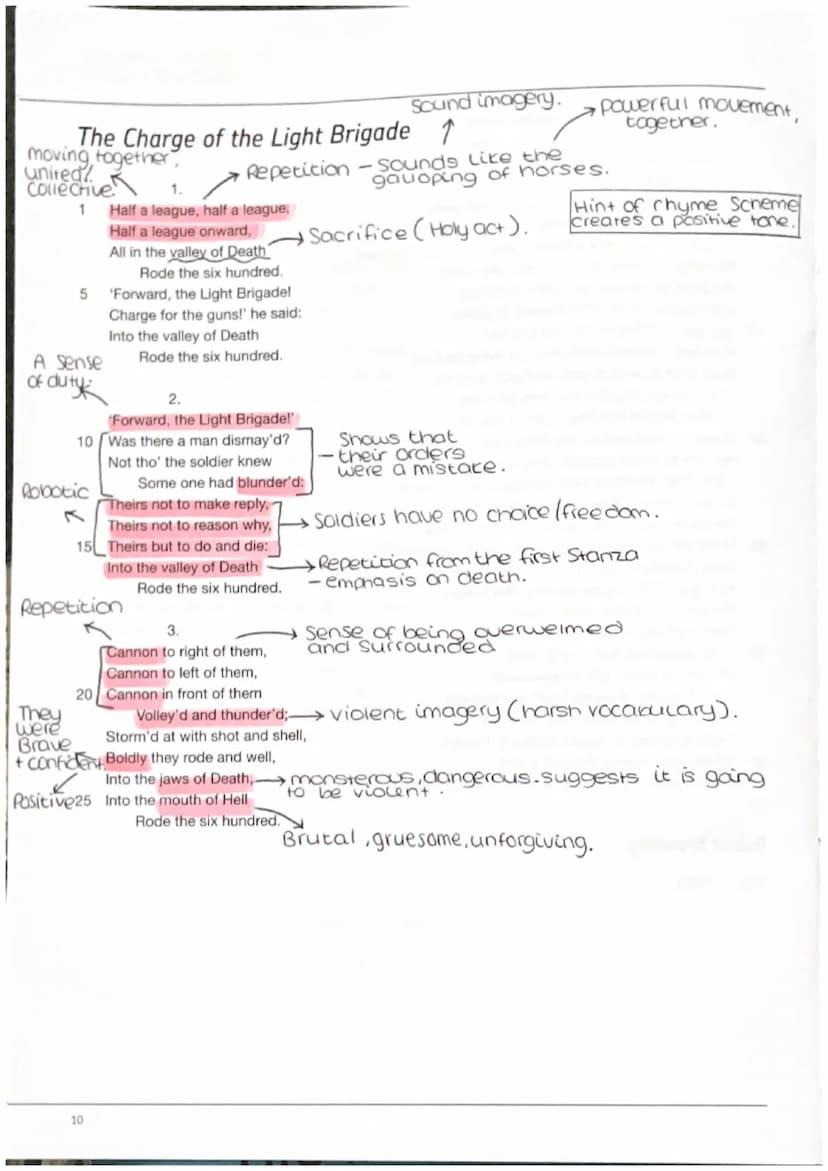 sound imagery.
powerful movement,
together.
The Charge of the Light Brigade
moving together.
united/
collective.
Repetition – sounds like the
galloping of horses.
1.
Hint of rhyme scheme
creates a positive tone.
1 Half a league, half a league,
Half a league onward,
All in the valley of Death
Sacrifice (Holy act).
Rode the six hundred.
5 ‘Forward, the Light Brigade!
Charge for the guns!’ he said:
Into the valley of Death
Rode the six hundred.
A sense
of duty.
2.
‘Forward, the Light Brigade!’
10 Was there a man dismay’d?
Not tho’ the soldier knew
Some one had blunder’d:
Shows that
– their orders
were a mistake.
Robotic
Theirs not to make reply,
Theirs not to reason why,
Soldiers have no choice/freedom.
15 Theirs but to do and die:
Into the valley of Death
Repetition from the first Stanza
– emphasis on death.
Rode the six hundred.
Repetition
3.
Sense of being overwelmed
and surrounded
Cannon to right of them,
Cannon to left of them,
20 Cannon in front of them
Volley’d and thunder’d;
violent imagery (harsh vocabulary).
They
were
Brave
+ confident.
Positive
Storm’d at with shot and shell,
Boldly they rode and well,
Into the jaws of Death,
monsterous, dangerous. suggests it is going
to be violent.
25 Into the mouth of Hell
Rode the six hundred.
Brutal, gruesome, unforgiving.
10